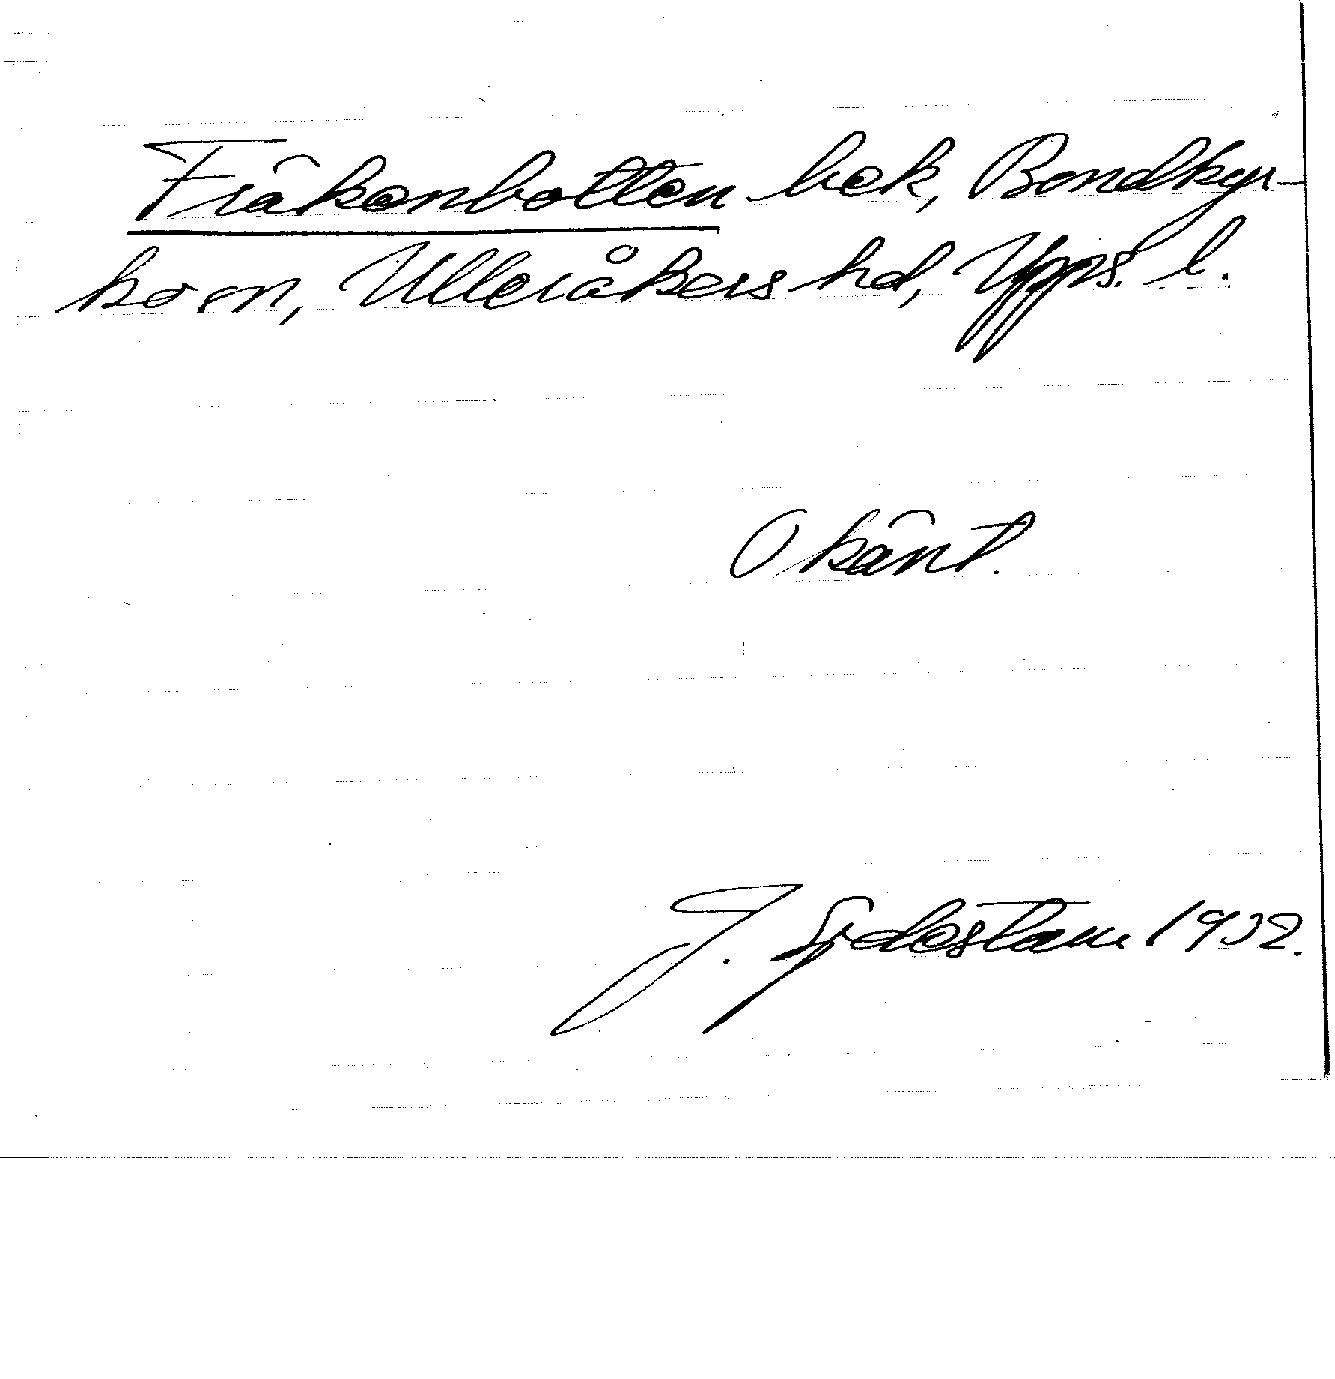 Fräkenbotten bek, Bondkyr-
ko sn, Ulleråkers hd, Upps. l.
Okänt.
J. Sjdestam 1932.